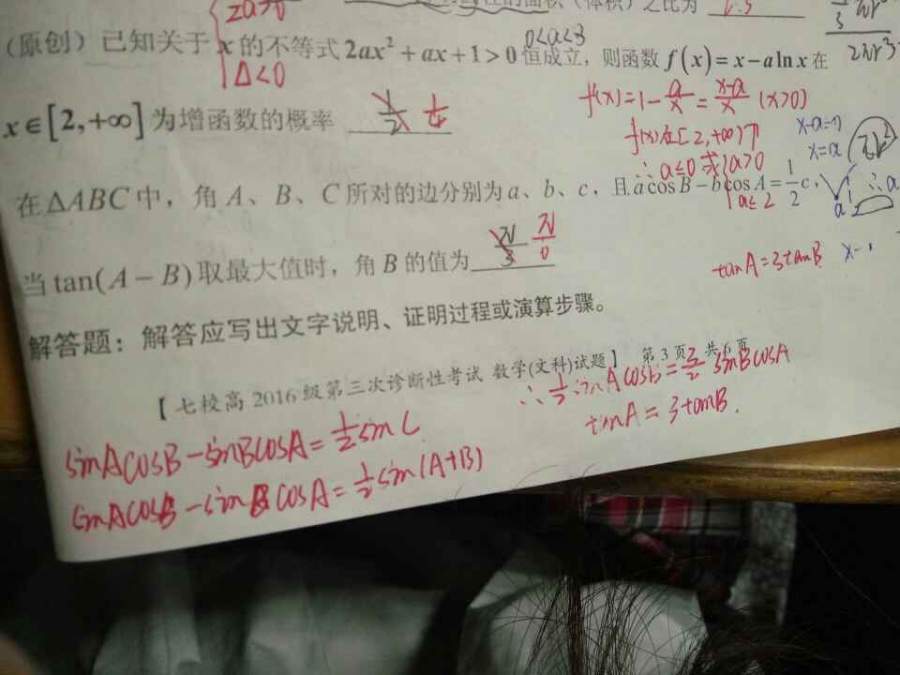 的面积（体积）之比为
2a>0
（原创）已知关于x的不等式2ax²+ax+1>0恒成立，则函数f(x)=x-alnx在
0<a<8
Δ<0
2πr³
x∈[2,+∞]为增函数的概率
f'(x)=1-a/x=(x-a)/x (x>0)
f(x)在[2,+∞)↗
∴a≤0或{a>0
a≤2
x=a
在ΔABC中，角A、B、C所对的边分别为a、b、c，且acosB-bcosA=1/2c，
当tan(A-B)取最大值时，角B的值为
π/3 π/6
tanA=3tanB
解答题：解答应写出文字说明、证明过程或演算步骤。
【七校高2016级第三次诊断性考试 数学(文科)试题】 第3页 共6页
∴1/2sinAcosB=3/2sinBcosA
tanA=3tanB.
sinAcosB-sinBcosA=1/2sinC
sinAcosB-sinBcosA=1/2sin(A+B)